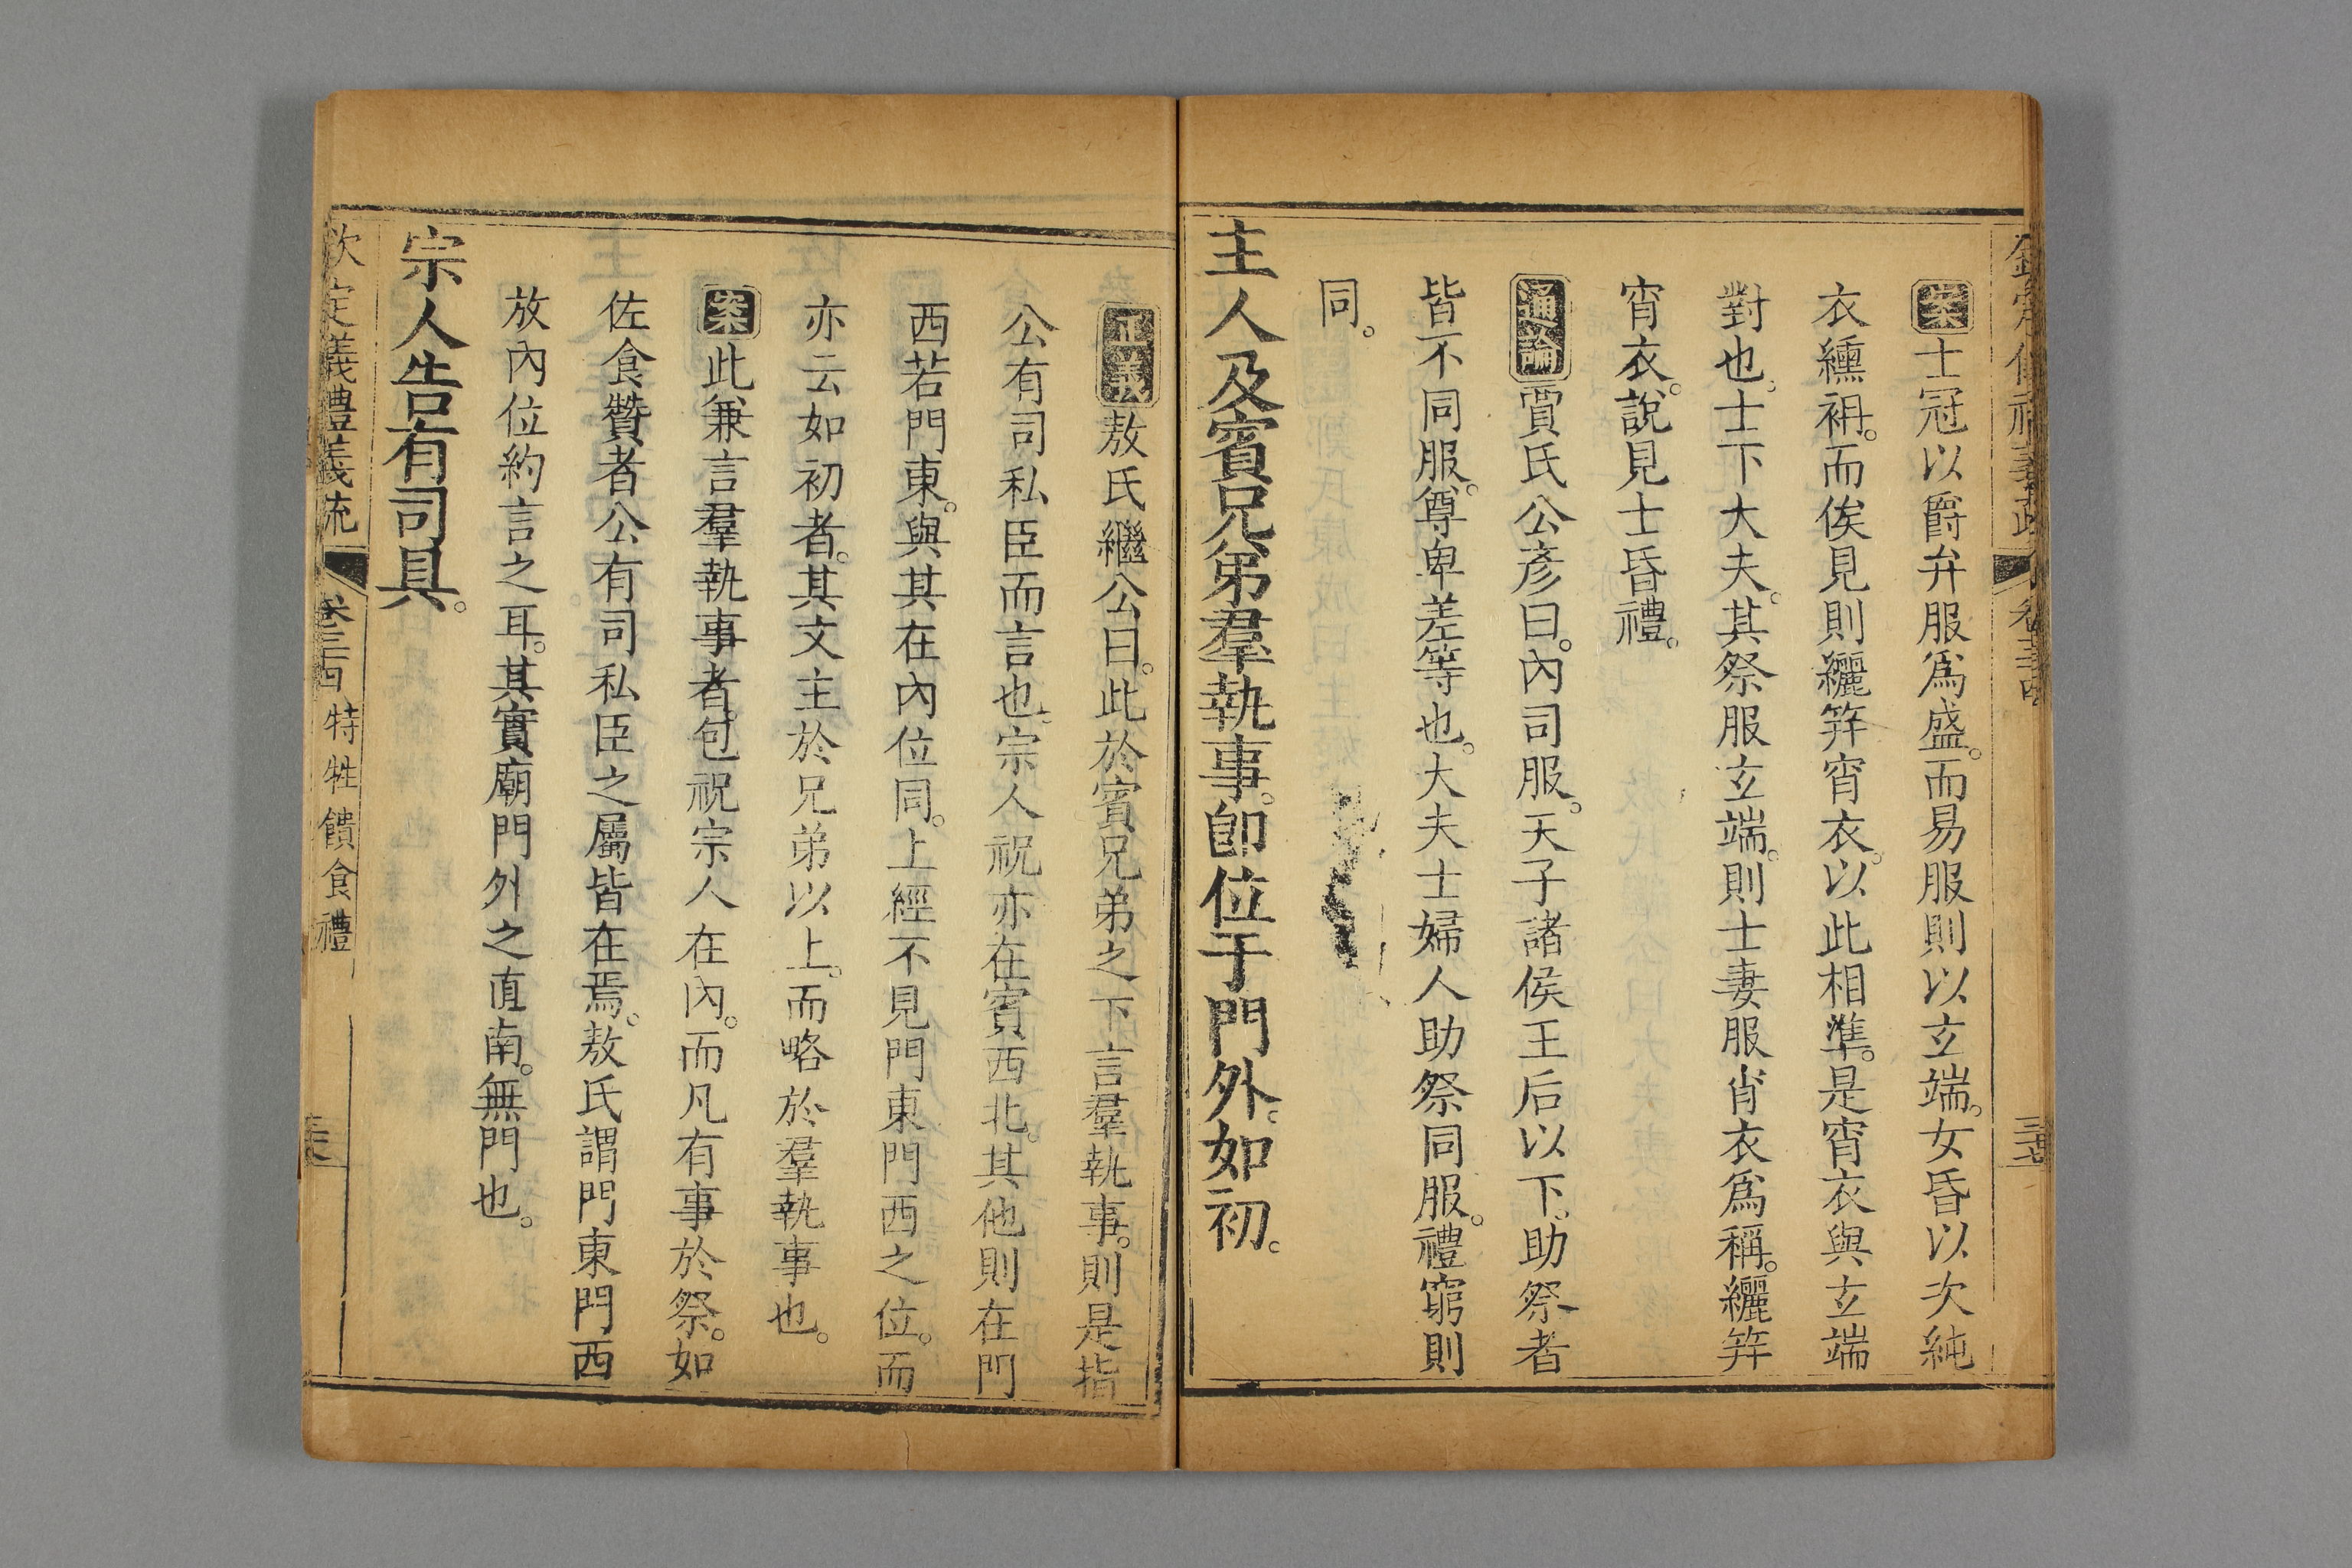 案士冠以爵弁服爲盛。而易服則以玄端。女昏以次純
衣纁袡。而俟見則纚笄宵衣。以此相準。是宵衣與玄端
對也。士下大夫。其祭服玄端。則士妻服宵衣爲稱。纚笄
宵衣。說見士昏禮。
通論賈氏公彥曰。內司服。天子諸侯王后以下。助祭者
皆不同服。尊卑差等也。大夫士婦人助祭同服。禮窮則
同。
主人及賓兄弟羣執事。卽位于門外。如初。
正義敖氏繼公曰。此於賓兄弟之下言羣執事。則是指
公有司私臣而言也。宗人祝亦在賓西北。其他則在門
西若門東。與其在內位同。上經不見門東門西之位。而
亦云如初者。其文主於兄弟以上。而略於羣執事也。
案此兼言羣執事者。包祝宗人在內。而凡有事於祭。如
佐食贊者公有司私臣之屬皆在焉。敖氏謂門東門西
放內位約言之耳。其實廟門外之直南。無門也。
宗人告有司具。
欽定儀禮義疏 卷三十四 特牲饋食禮